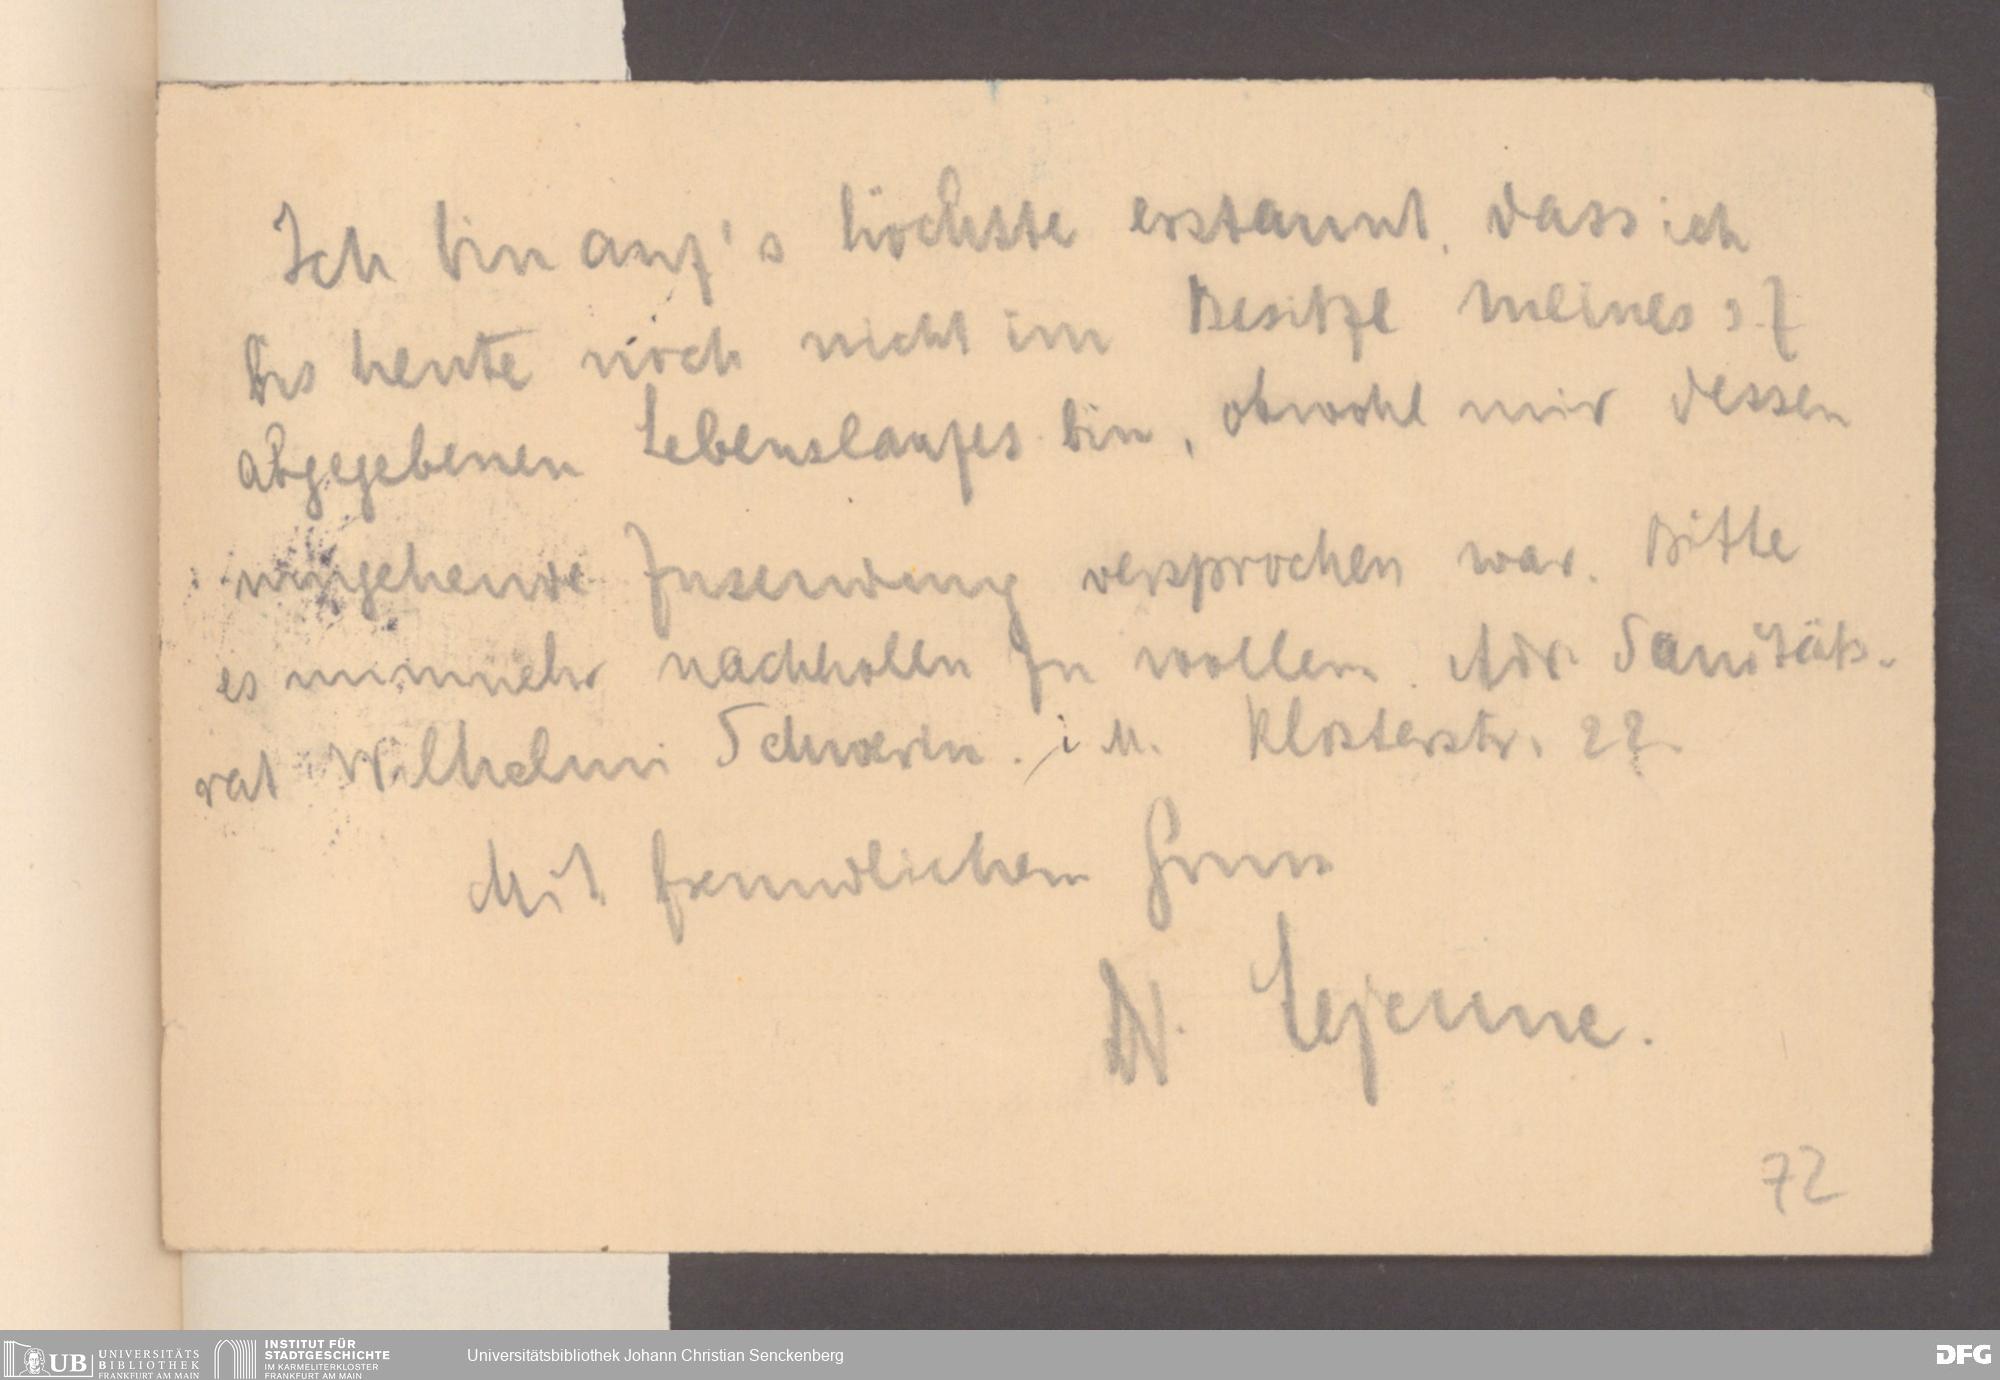 Ich bin auf's höchste erstaunt, dass ich
bis heute noch nicht im Besitze meines s. Z.
abgegebenen Lebenslaufes bin, obwohl mir dessen
umgehende Zusendung versprochen war. Bitte
es nunmehr nachholen zu wollen. Adr. Sanitäts-
rat Wilhelmi Schwerin. i M. Klosterstr. 22.
Mit freundlichem Gruss
Dr. Lejeune.
72
UB UNIVERSITÄTS
BIBLIOTHEK
FRANKFURT AM MAIN
INSTITUT FÜR
STADTGESCHICHTE
IM KARMELITERKLOSTER
FRANKFURT AM MAIN
Universitätsbibliothek Johann Christian Senckenberg
DFG